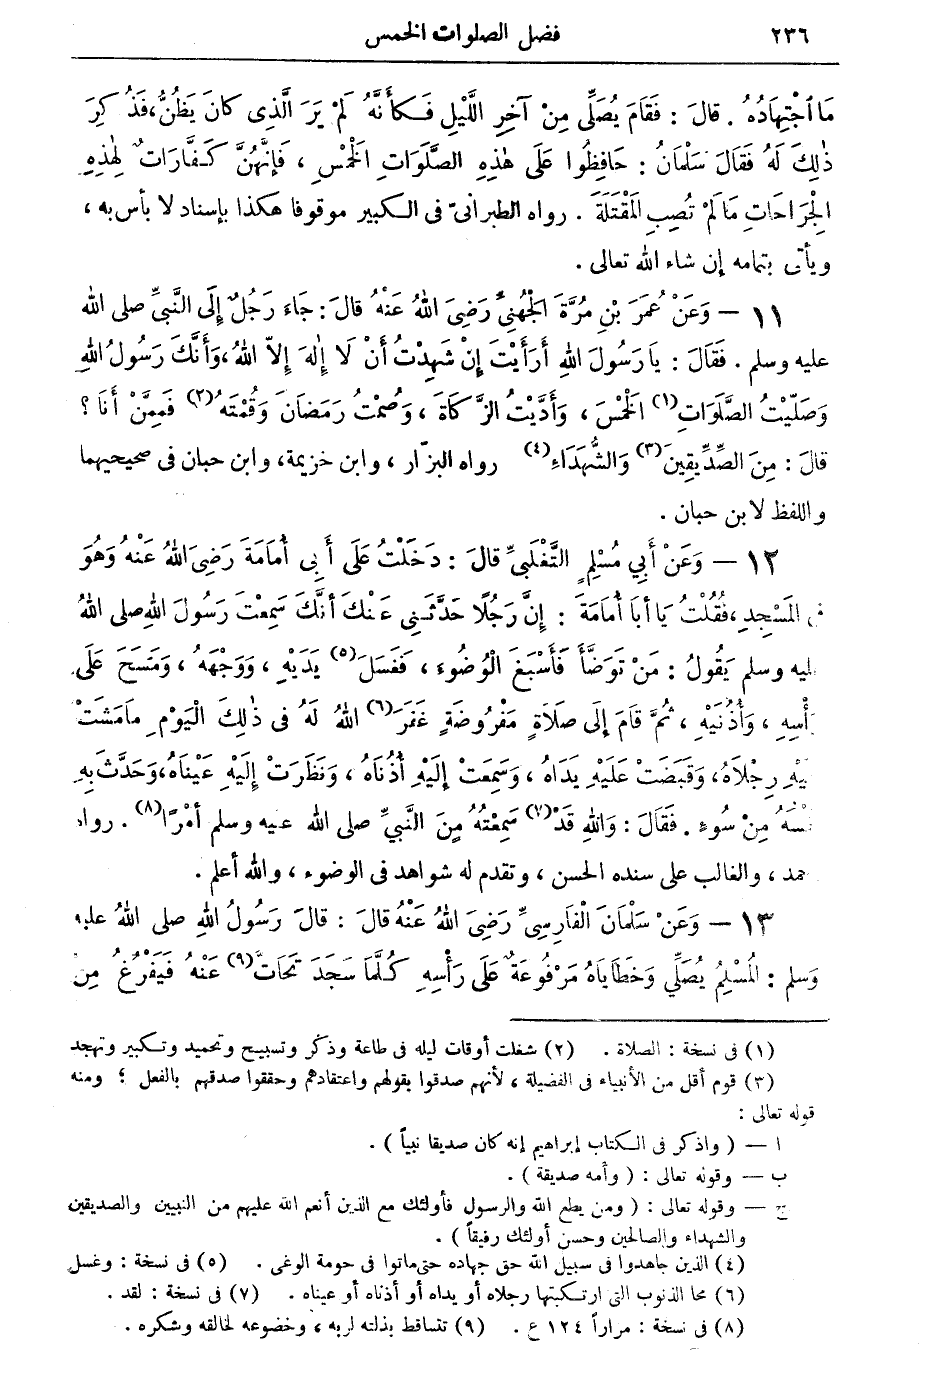 ٢٣٦ فضل الصلوات الخمس
مَا اجْتِهَادُهُ . قالَ : فَقَامَ يُصَلِّي مِنْ آخِرِ اللَّيْلِ فَكَأَنَّهُ لَمْ يَرَ الَّذِي كانَ يَظُنُّ، فَذُكِرَ
ذٰلِكَ لَهُ فَقَالَ سَلْمَانُ : حَافِظُوا عَلَى هٰذِهِ الصَّلَوَاتِ الْخَمْسِ ، فَإِنَّهُنَّ كَفَّارَاتٌ لِهٰذِهِ
الْجِرَاحَاتِ مَا لَمْ تُصِبِ الْمَقْتَلَةَ . رواه الطبرانىّ فى الكبير موقوفا هكذا بإسناد لا بأس به ،
ويأتى بتمامه إن شاء الله تعالى .
١١ — وَعَنْ عُمَرَ بْنِ مُرَّةَ الْجُهَنِيِّ رَضِيَ اللهُ عَنْهُ قالَ : جَاءَ رَجُلٌ إِلَى النَّبِيِّ صلى الله
عليه وسلم . فَقَالَ : يَا رَسُولَ اللهِ أَرَأَيْتَ إِنْ شَهِدْتُ أَنْ لَا إِلٰهَ إِلاَّ اللهُ، وَأَنَّكَ رَسُولُ اللهِ
وَصَلَّيْتُ الصَّلَوَاتِ(١) الْخَمْسَ ، وَأَدَّيْتُ الزَّكَاةَ ، وَصُمْتُ رَمَضَانَ وَقُمْتَهُ(٢) فَمِمَّنْ أَنَا ؟
قالَ : مِنَ الصِّدِّيقِينَ(٣) وَالشُّهَدَاءِ(٤) رواه البزّار ، وابن خزيمة، وابن حبان فى صحيحيهما
واللفظ لابن حبان .
١٢ — وَعَنْ أَبِي مُسْلِمٍ التَّغْلَبِيِّ قالَ : دَخَلْتُ عَلَى أَبِي أُمَامَةَ رَضِيَ اللهُ عَنْهُ وَهُوَ
فى الْمَسْجِدِ، فَقُلْتُ يَا أَبَا أُمَامَةَ : إِنَّ رَجُلًا حَدَّثَنِي عَنْكَ أَنَّكَ سَمِعْتَ رَسُولَ اللهِ صلى اللهُ
ليه وسلم يَقُولُ : مَنْ تَوَضَّأَ فَأَسْبَغَ الْوُضُوءَ ، فَغَسَلَ(٥) يَدَيْهِ ، وَوَجْهَهُ ، وَمَسَحَ عَلَى
رَأْسِهِ ، وَأُذُنَيْهِ ، ثُمَّ قَامَ إِلَى صَلَاةٍ مَفْرُوضَةٍ غَفَرَ(٦) اللهُ لَهُ فى ذٰلِكَ الْيَوْمِ مَا مَشَتْ
يْهِ رِجْلَاهُ، وَقَبَضَتْ عَلَيْهِ يَدَاهُ ، وَسَمِعَتْ إِلَيْهِ أُذُنَاهُ ، وَنَظَرَتْ إِلَيْهِ عَيْنَاهُ، وَحَدَّثَ بِهِ
نَفْسَهُ مِنْ سُوءٍ . فَقَالَ : وَاللهِ قَدْ(٧) سَمِعْتُهُ مِنَ النَّبِيِّ صلى الله عليه وسلم أَمْرًا(٨) . رواه
حمد ، والغالب على سنده الحسن ، وتقدم له شواهد فى الوضوء ، والله أعلم .
١٣ — وَعَنْ سَلْمَانَ الْفَارِسِيِّ رَضِيَ اللهُ عَنْهُ قالَ : قالَ رَسُولُ اللهِ صلى اللهُ عليه
وَسلم : الْمُسْلِمُ يُصَلِّي وَخَطَايَاهُ مَرْفُوعَةٌ عَلَى رَأْسِهِ كُلَّمَا سَجَدَ تَحَاتَّ(٩) عَنْهُ فَيَفْرُغُ مِنْ
(١) فى نسخة : الصلاة . (٢) شغلت أوقات ليله فى طاعة وذكر وتسبيح وتحميد وتكبير وتهجد
(٣) قوم أقل من الأنبياء فى الفضيلة ، لأنهم صدقوا بقولهم واعتقادهم وحققوا صدقهم بالفعل ؛ ومنه
قوله تعالى :
ا — ( واذكر فى الكتاب إبراهيم إنه كان صديقا نبياً ) .
ب — وقوله تعالى : ( وأمه صديقة ) .
ج — وقوله تعالى : ( ومن يطع الله والرسول فأولئك مع الذين أنعم الله عليهم من النبيين والصديقين
والشهداء والصالحين وحسن أولئك رفيقاً ) .
(٤) الذين جاهدوا فى سبيل الله حق جهاده حتى ماتوا فى حومة الوغى . (٥) فى نسخة : وغسل
(٦) محا الذنوب التى ارتكبتها رجلاه أو يداه أو أذناه أو عيناه . (٧) فى نسخة : لقد .
(٨) فى نسخة : مراراً ١٢٤ ع . (٩) تتساقط بذلته لربه ، وخضوعه لخالقه وشكره .